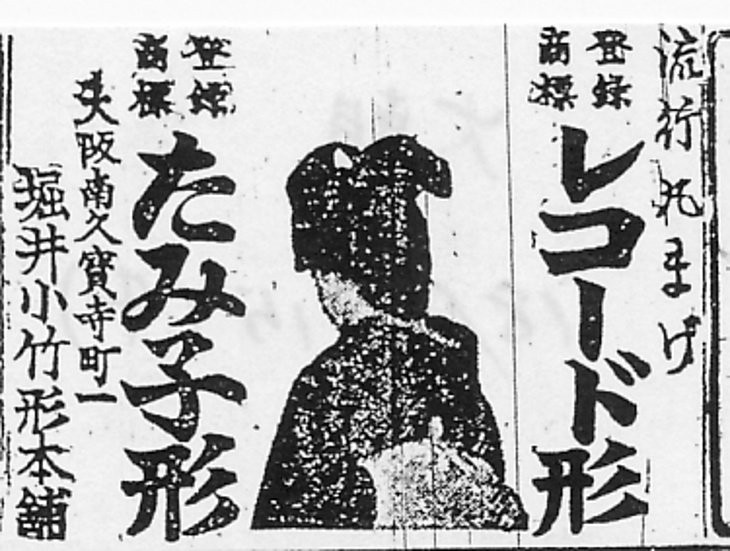 流行丸まげ
登録
商標
レコード形
登録
商標
たみ子形
大阪南久寶寺町一
堀井小竹形本舖